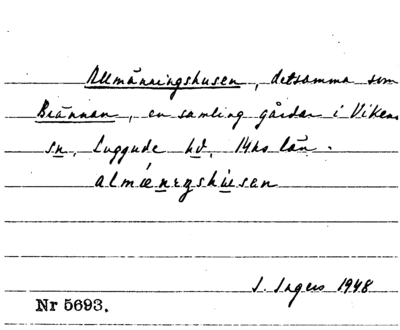 Allmänningshusen, detsamma som
Brännan, en samling gårdar i Vikens
sn, Luggude hd, Mhs län.
almæ̀nıŋshùsen
I. Ingers 1948
Nr 5693.